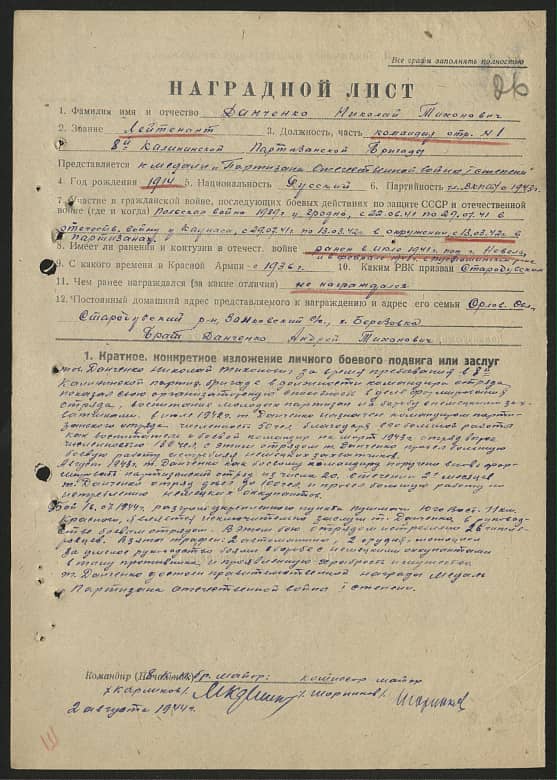 Все графы заполнять полностью
26
НАГРАДНОЙ ЛИСТ
1. Фамилия имя и отчество Данченко Николай Тихонович
2. Звание Лейтенант 3. Должность, часть командир отр. №1
8й Калининской Партизанской Бригады
Представляется к медали "Партизана Отечественной войны I степени"
4. Год рождения 1914 5. Национальность Русский 6. Партийность чл. ВКП(б) с 1943г.
7. Участие в гражданской войне, последующих боевых действиях по защите СССР и отечественной
войне (где и когда) Польская война 1939г. г. Гродно, с 22.06.41 по 29.07.41 в
отечеств. войну с 29.07.41 по 13.03.42г. в окружении, с 13.03.42г. в
партизанах
8. Имеет ли ранения и контузии в отечест. войне ранен в июле 1941г. под г. Невель,
9. С какого времени в Красной Армии с 1936г. 10. Каким РВК призван Стародубским
11. Чем ранее награждался (за какие отличия) не награждался
12. Постоянный домашний адрес представляемого к награждению и адрес его семьи Орлов. обл,
Стародубский р-н, с/с, д. Березовка
Брат Данченко Андрей Тихонович
1. Краткое, конкретное изложение личного боевого подвига или заслуг
тов. Данченко Николай Тихонович за время пребывания в 8й
Калининской партиз. бригаде в должности командира отряда
показал свою организаторскую способность в деле формирования
отряда, воспитания молодых партизан на борьбу с немецкими зах-
ватчиками. В июле 1942г. т. Данченко назначен командиром парти-
занского отряда численность 50 чел благодаря его большой работы
как воспитателя и боевой командир на март 1943г отряд вырос
численностью чел с этим отрядом т. Данченко провел большую
боевую работу истребляя немецких захватчиков.
Август 1943г. т. Данченко как боевому командиру поручено вновь фор-
мировать партизанский отряд из числа 20, в течении 2х месяцев
т. Данченко отряд довел до 100 чел и провел большую работу по
истреблению немецких оккупантов.
Бой 16.07.1944г. разгром укрепленного пункта юго-вост. 11 км.
Красный, является исключительно заслуги т. Данченко в руковод-
стве боевым отрядом. В этом бою отрядом истреблено 28 гитле-
ровцев. Взяты трофеи: 2 автомашины, 2 орудия, мотоцикл
За умелое руководство боями в борьбе с немецкими оккупантами
в тылу противника, и проявленную храбрость и мужество
т. Данченко достоин правительственной награды Медаль
Партизана отечественной войны I степени.
Командир (Начальник) 8 к.п.бр. майор: комиссар майор
/Карликов/. /Шориннов/.
2 августа 1944г.